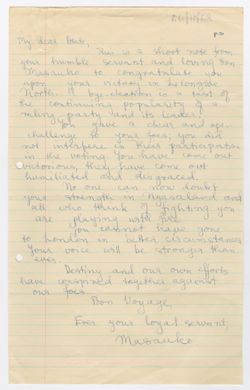 My dear
This is a short note from
your humble servant and loving son
Masauko to congratulate you
upon your victory in
North. A bye-election is a test of
the continuing popularity of a
ruling party and its leader!
You gave a clear and open
challenge to your foes; you did
not interfere in their participation
in the voting. You have come out
victorious, they have come out
humiliated and disgraced.
No one can now doubt
your strength in Nyasaland and
all who think of fighting you
are playing with fire.
You cannot have gone
to London in better circumstances.
Your voice will be stronger than
ever.
Destiny and our own efforts
have conspired together against
our foes.
Bon Voyage,
Ever your loyal servant,
Masauko